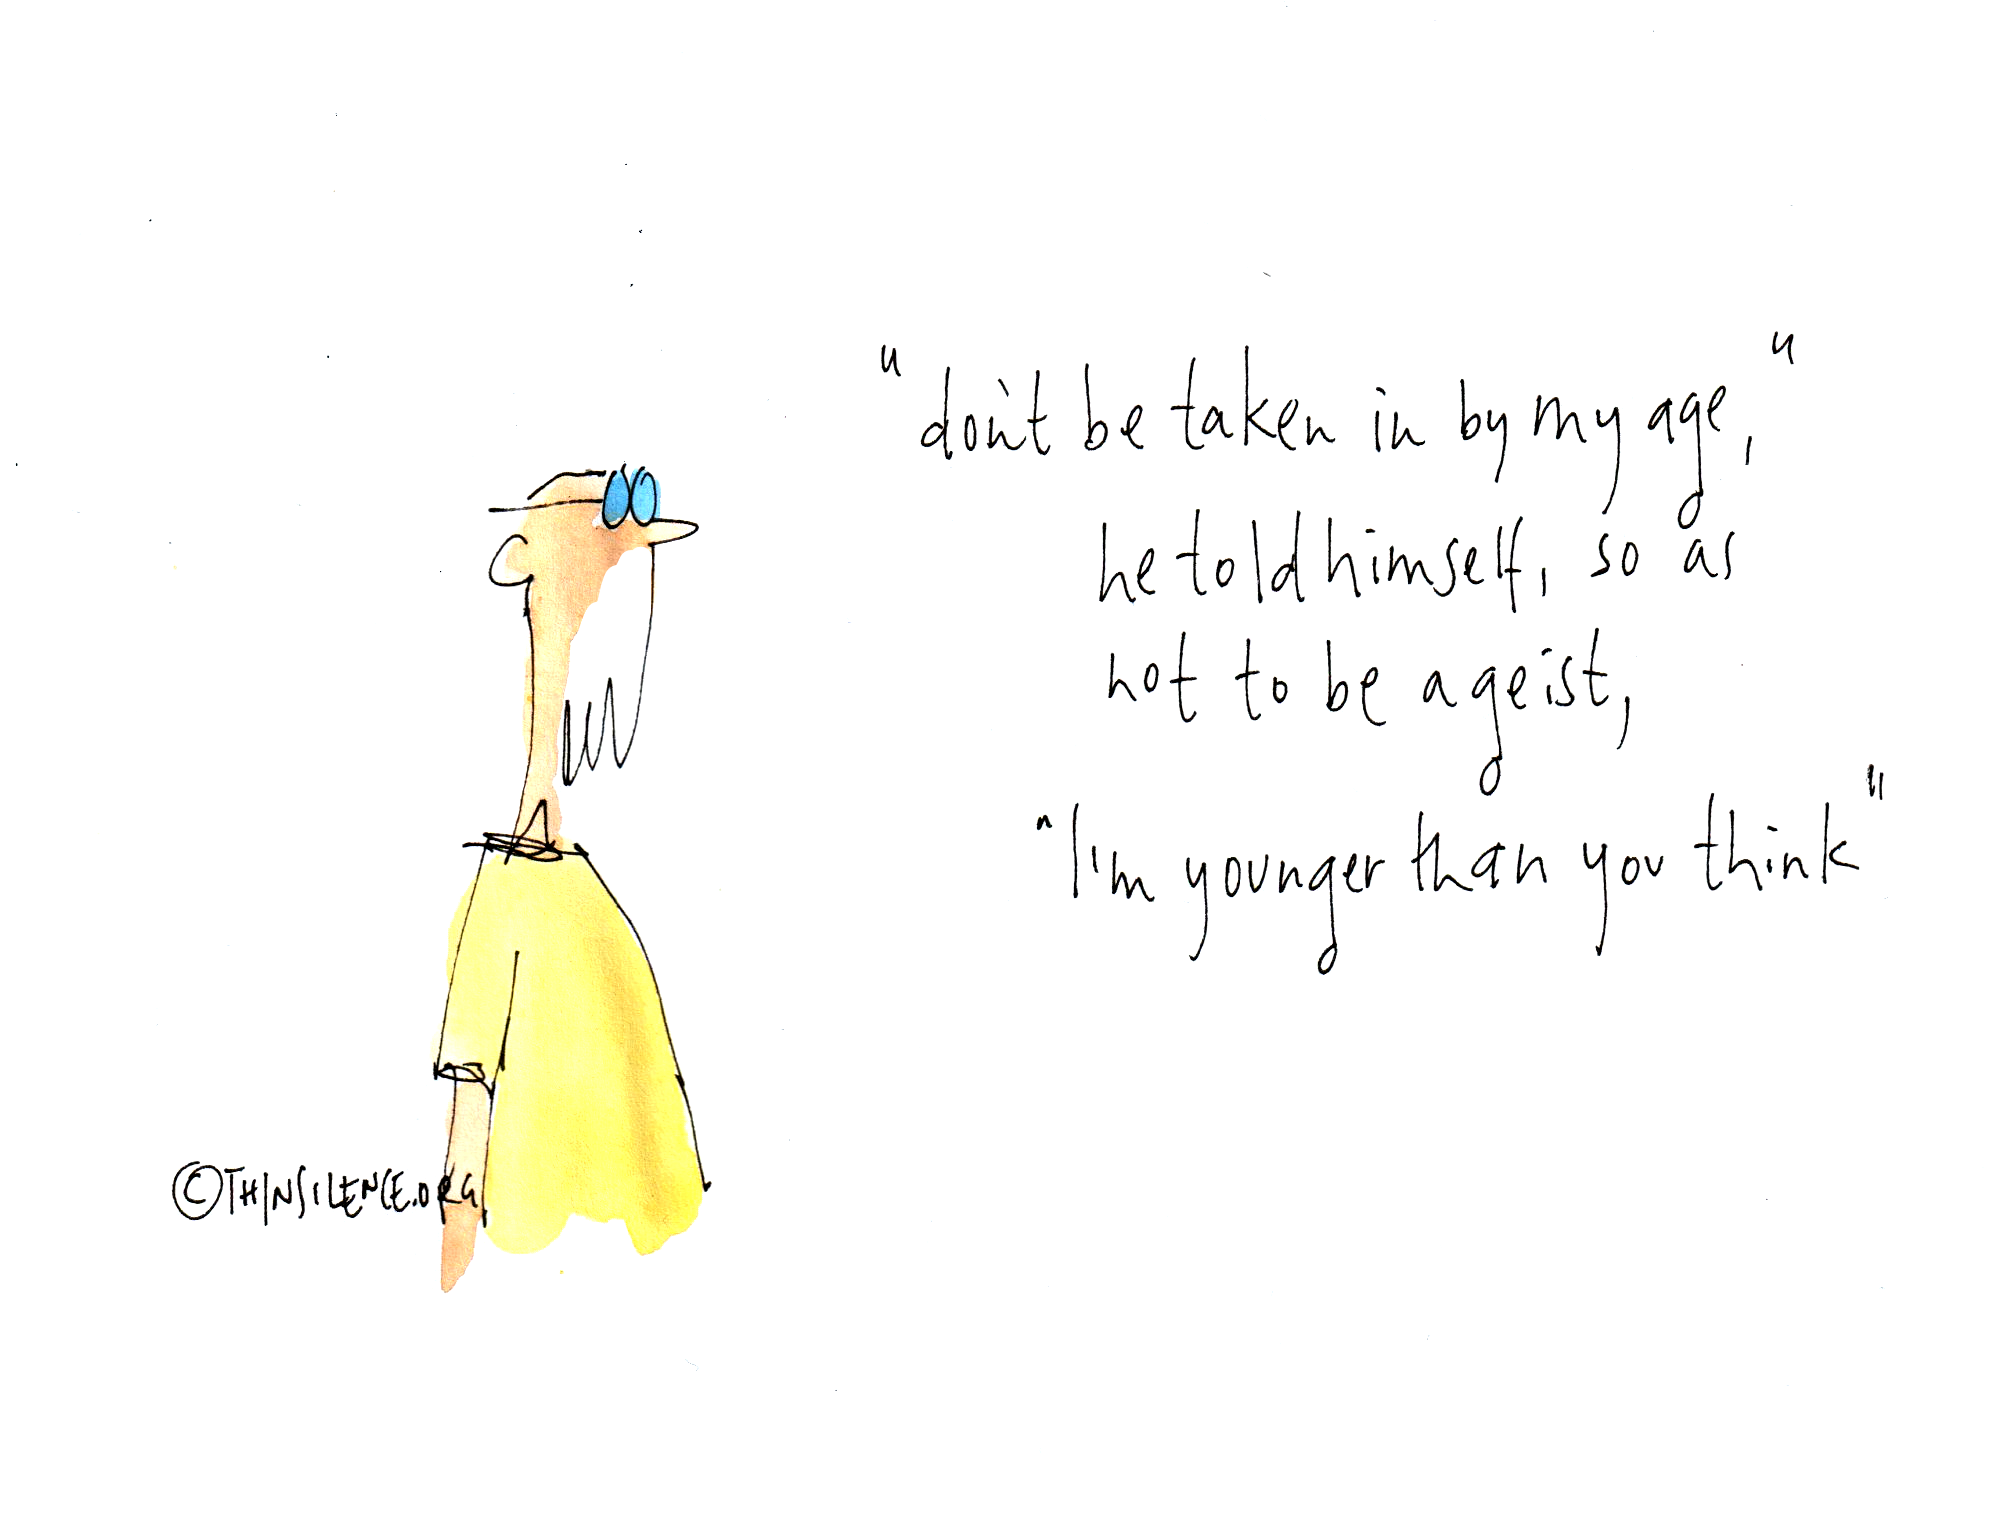 "don't be taken in by my age,"
he told himself, so as
not to be ageist,
"I'm younger than you think"
©THINSILENCE.ORG